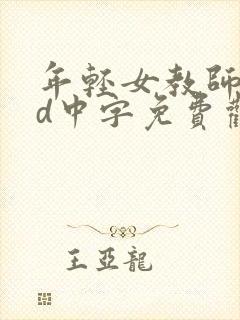 年輕女教師
d中字免費觀
王亞龍